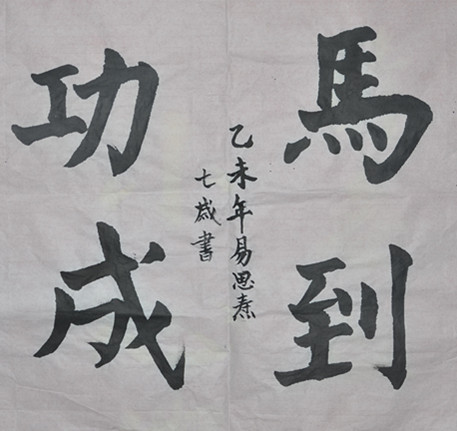 馬到
功成
乙未年易思焘
七歲書